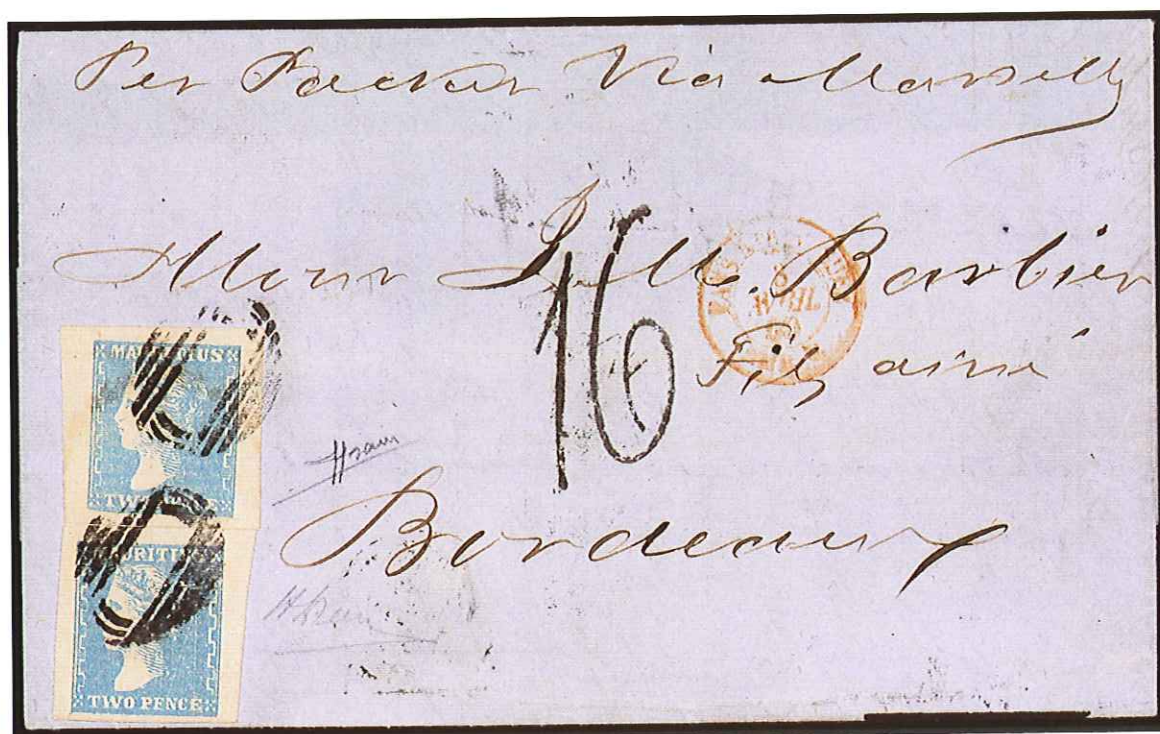 Per Packet Via Marseille
Monsr J. M. Barbier
Fils ainé
Bordeaux
16
AVRIL
MAURITIUS
TWO PENCE
MAURITIUS
TWO PENCE